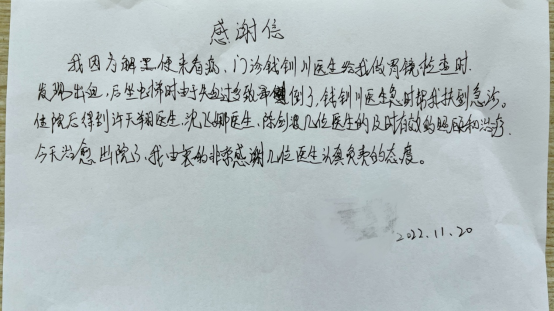 感谢信
我因为解黑便来看病，门诊钱钊川医生给我做胃镜检查时
发现出血，后坐电梯时由于失血过多致晕倒了，钱钊川医生急时把我扶到急诊。
住院后得到许天翔医生，沈飞娜医生，陈剑几位医生的及时有效的照顾和治疗，
今天治愈出院了，我由衷的非常感谢几位医生认真负责的态度。
2022.11.20